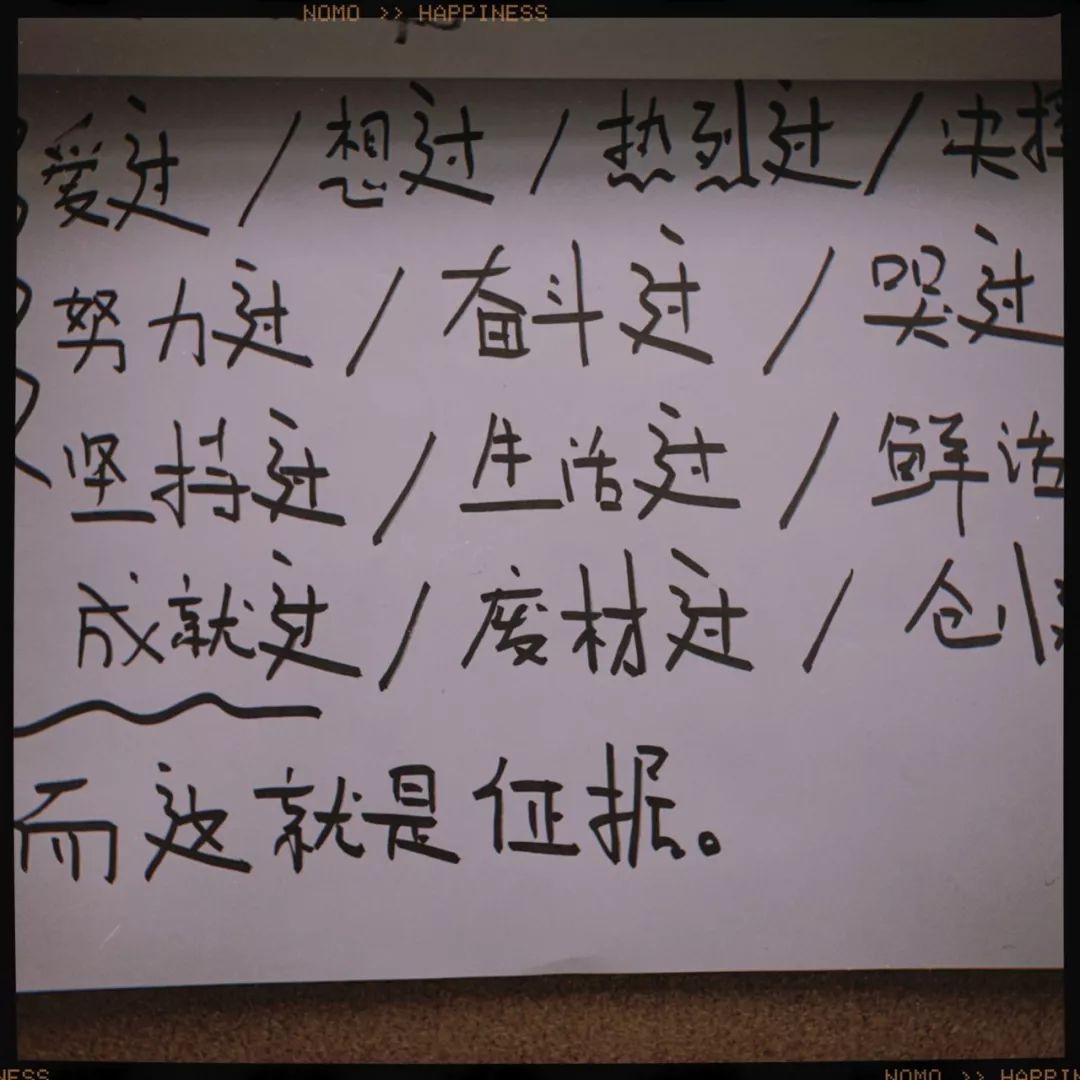 NOMO >> HAPPINESS
爱过/想过/热烈过/决择
努力过/奋斗过/哭过
坚持过/生活过/鲜活
成就过/废材过/创
而这就是证据。
NESS
NOMO >> HAPPIN